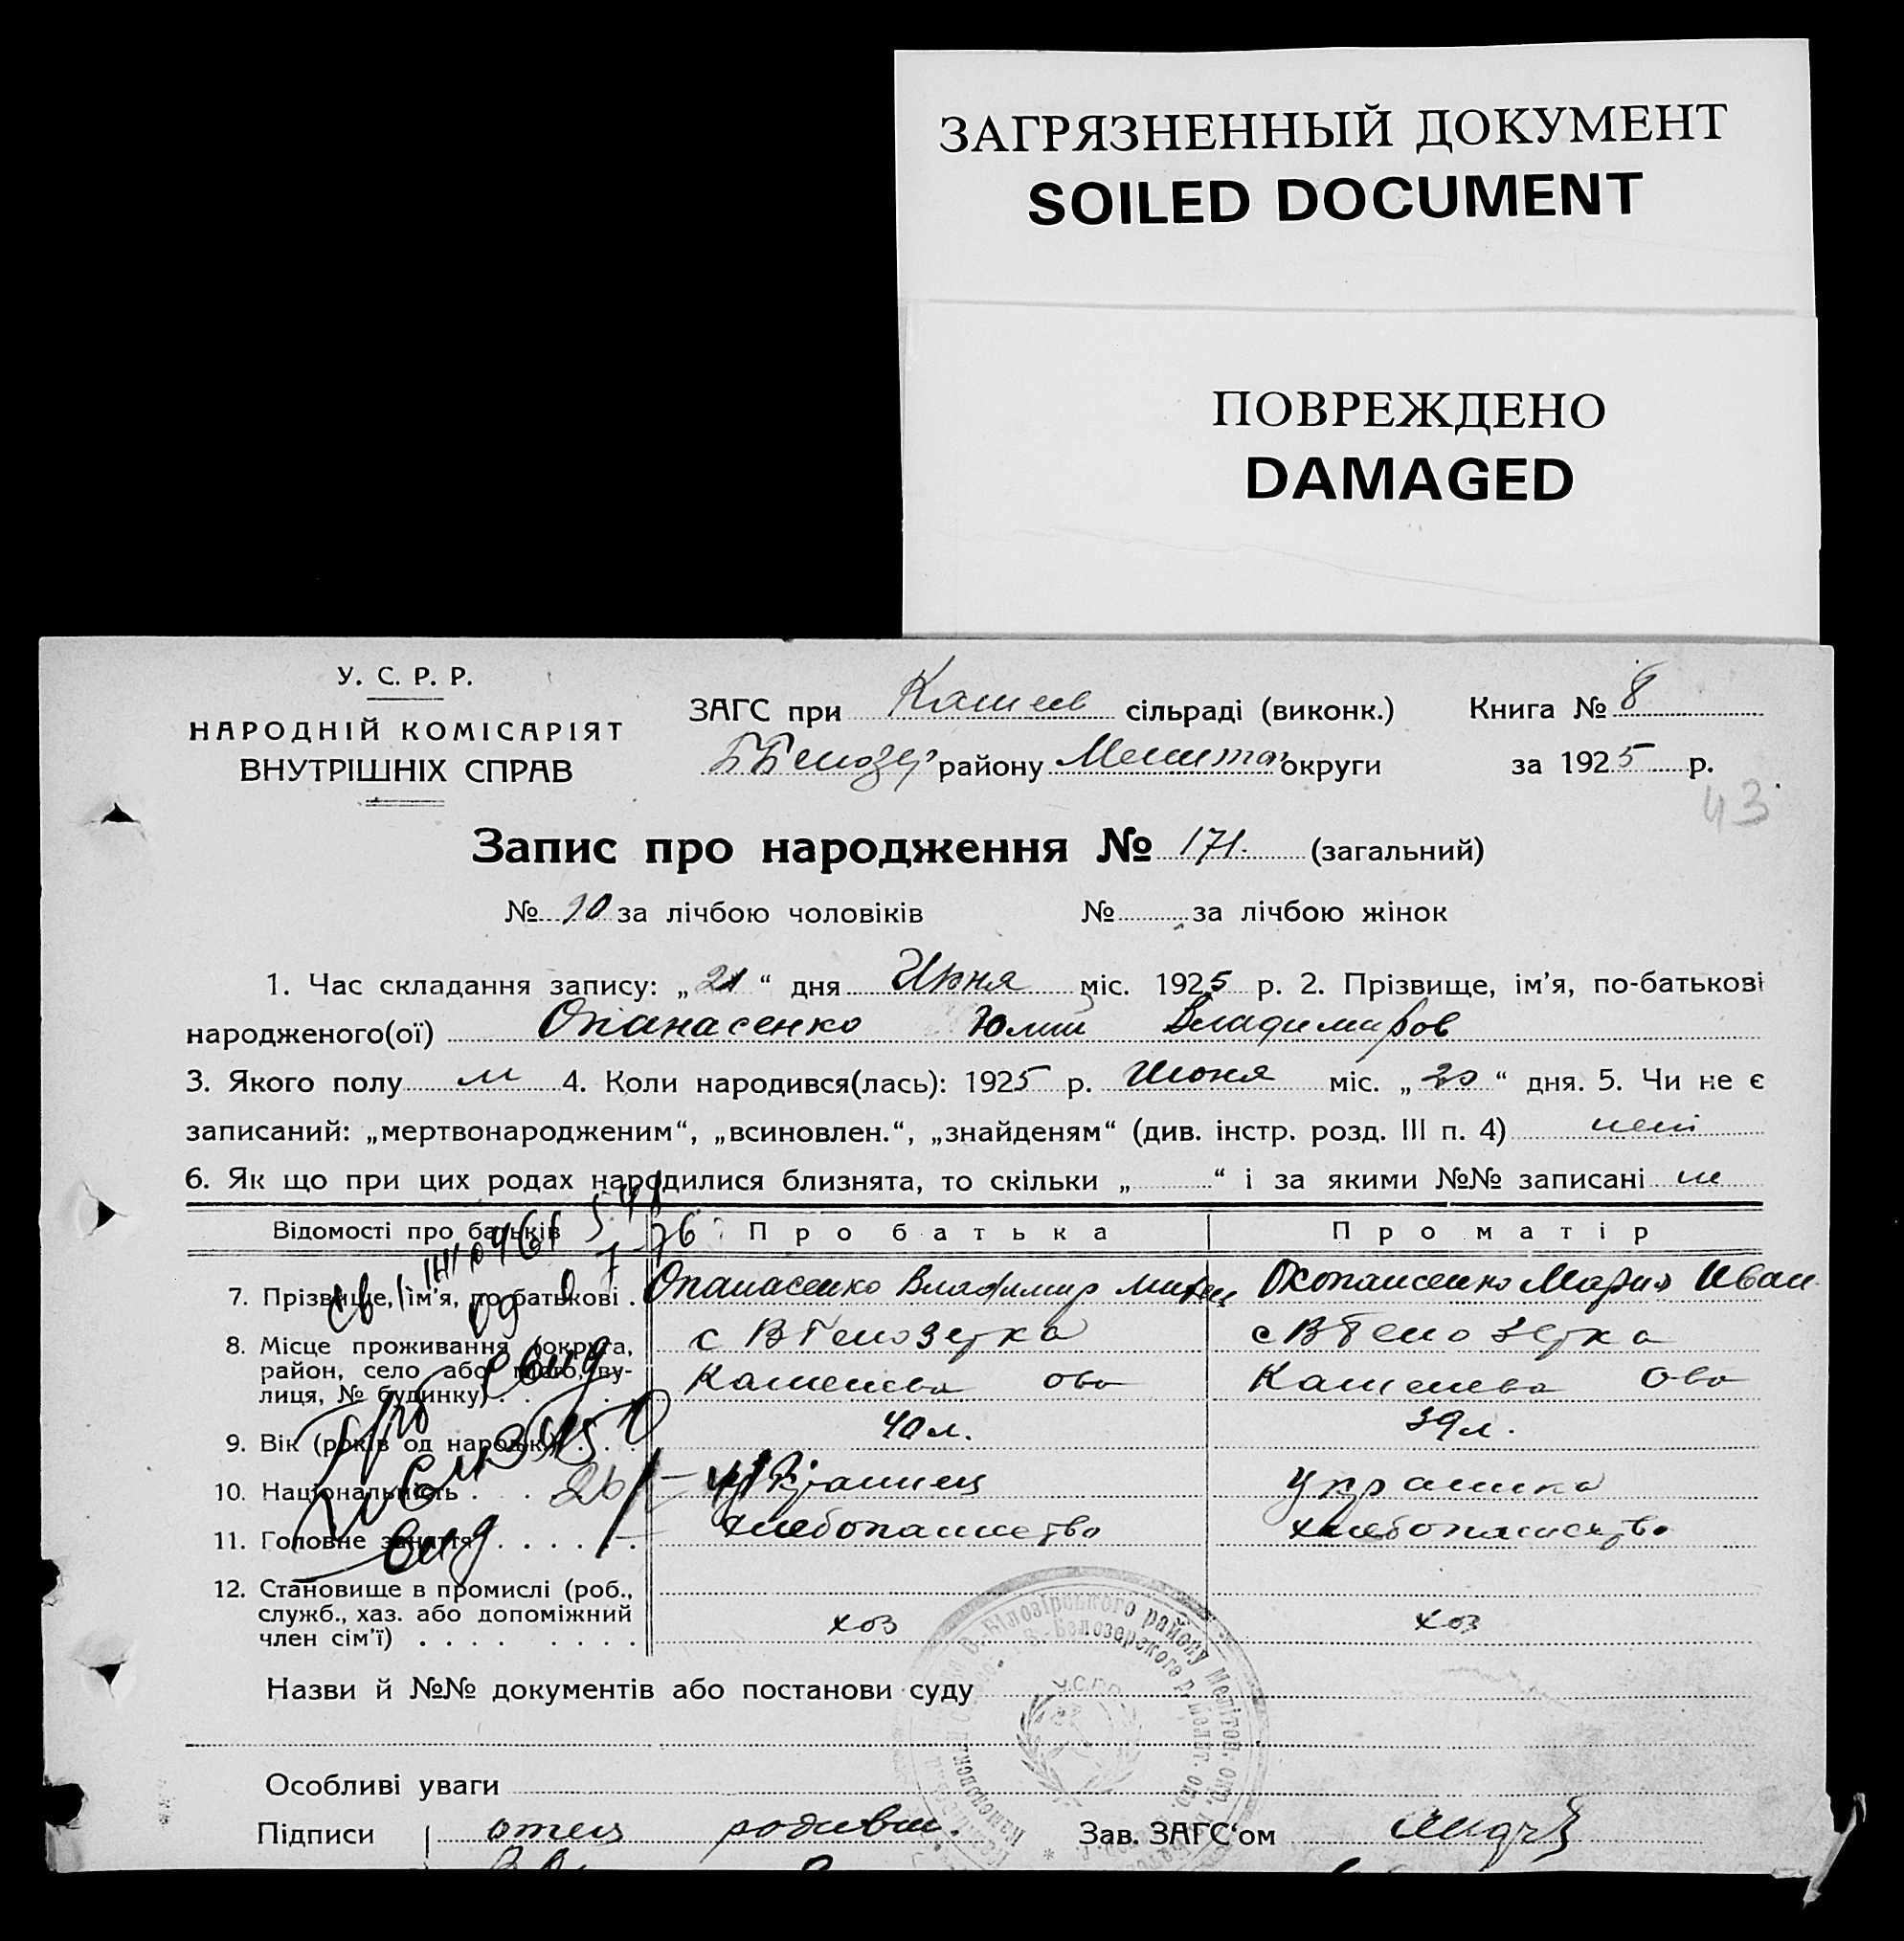 ЗАГРЯЗНЕННЫЙ ДОКУМЕНТ
SOILED DOCUMENT
ПОВРЕЖДЕНО
DAMAGED
У. С. Р. Р.
НАРОДНІЙ КОМІСАРІЯТ
ВНУТРІШНІХ СПРАВ
ЗАГС при сільраді (виконк.) Книга № 8
району округи за 1925 р.
43
Запис про народження № 171. (загальний)
№ 90 за лічбою чоловіків № за лічбою жінок
1. Час складання запису: „21“ дня Июня міс. 1925 р. 2. Прізвище, ім'я, по-батькові
народженого(ої) Опанасенко Юлий Владимиров
3. Якого полу м 4. Коли народився(лась): 1925 р. Июня міс. „20“ дня. 5. Чи не є
записаний: „мертвонародженим“, „всиновлен.“, „знайденям“ (див. інстр. розд. III п. 4)
6. Як що при цих родах народилися близнята, то скільки „ “ і за якими №№ записані
Відомості про батьків Про батька Про матір
7. Прізвище, ім'я, по-батькові . Опанасенко Владимир Опанасенко Мария Иван
8. Місце проживання (округа, с В Белозерка с В Белозерка
район, село або місто, ву-
лиця, № будинку) . . . Каменева Каменева
9. Вік (років од народж.) . . . 40 л. 39 л.
10. Національність . . . Украинец Украинка
11. Головне заняття . . . . . . хлебопашество хлебопашество
12. Становище в промислі (роб.,
служб., хаз. або допоміжний хоз хоз
член сім'ї) . . . . . . . . .
Назви й №№ документів або постанови суду
Особливі уваги
Підписи отец родивш. Зав. ЗАГС'ом